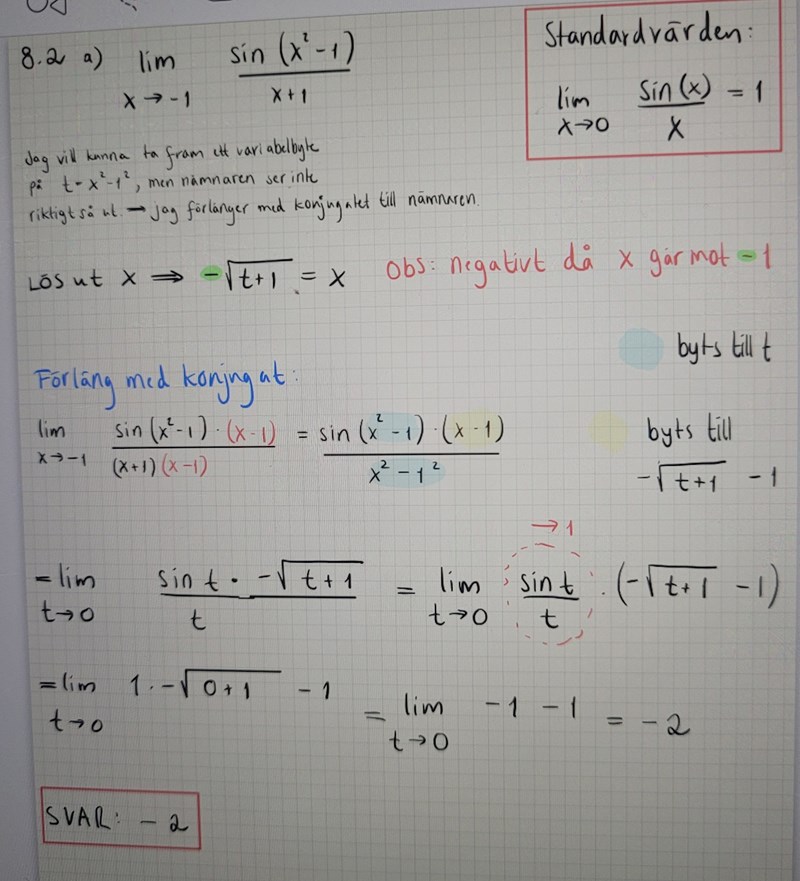 8.2 a) lim x→-1 sin (x²-1) / x+1
Standardvärden:
lim x→0 sin(x)/x = 1
Jag vill kunna ta fram ett variabelbyte
på t = x²-1², men nämnaren ser inte
riktigt så ut. → jag förlänger med konjugatet till nämnaren.
Lös ut x ⟹ -√(t+1) = x Obs: negativt då x går mot -1
byts till t
Förläng med konjugat:
lim x→-1 sin(x²-1)·(x-1) / (x+1)(x-1) = sin(x²-1)·(x-1) / x²-1²
byts till
-√(t+1) -1
→1
=lim t→0 sin t · -√(t+1) / t = lim t→0 sin t / t · (-√(t+1) -1)
=lim t→0 1·-√(0+1) -1 = lim t→0 -1 -1 = -2
SVAR: -2